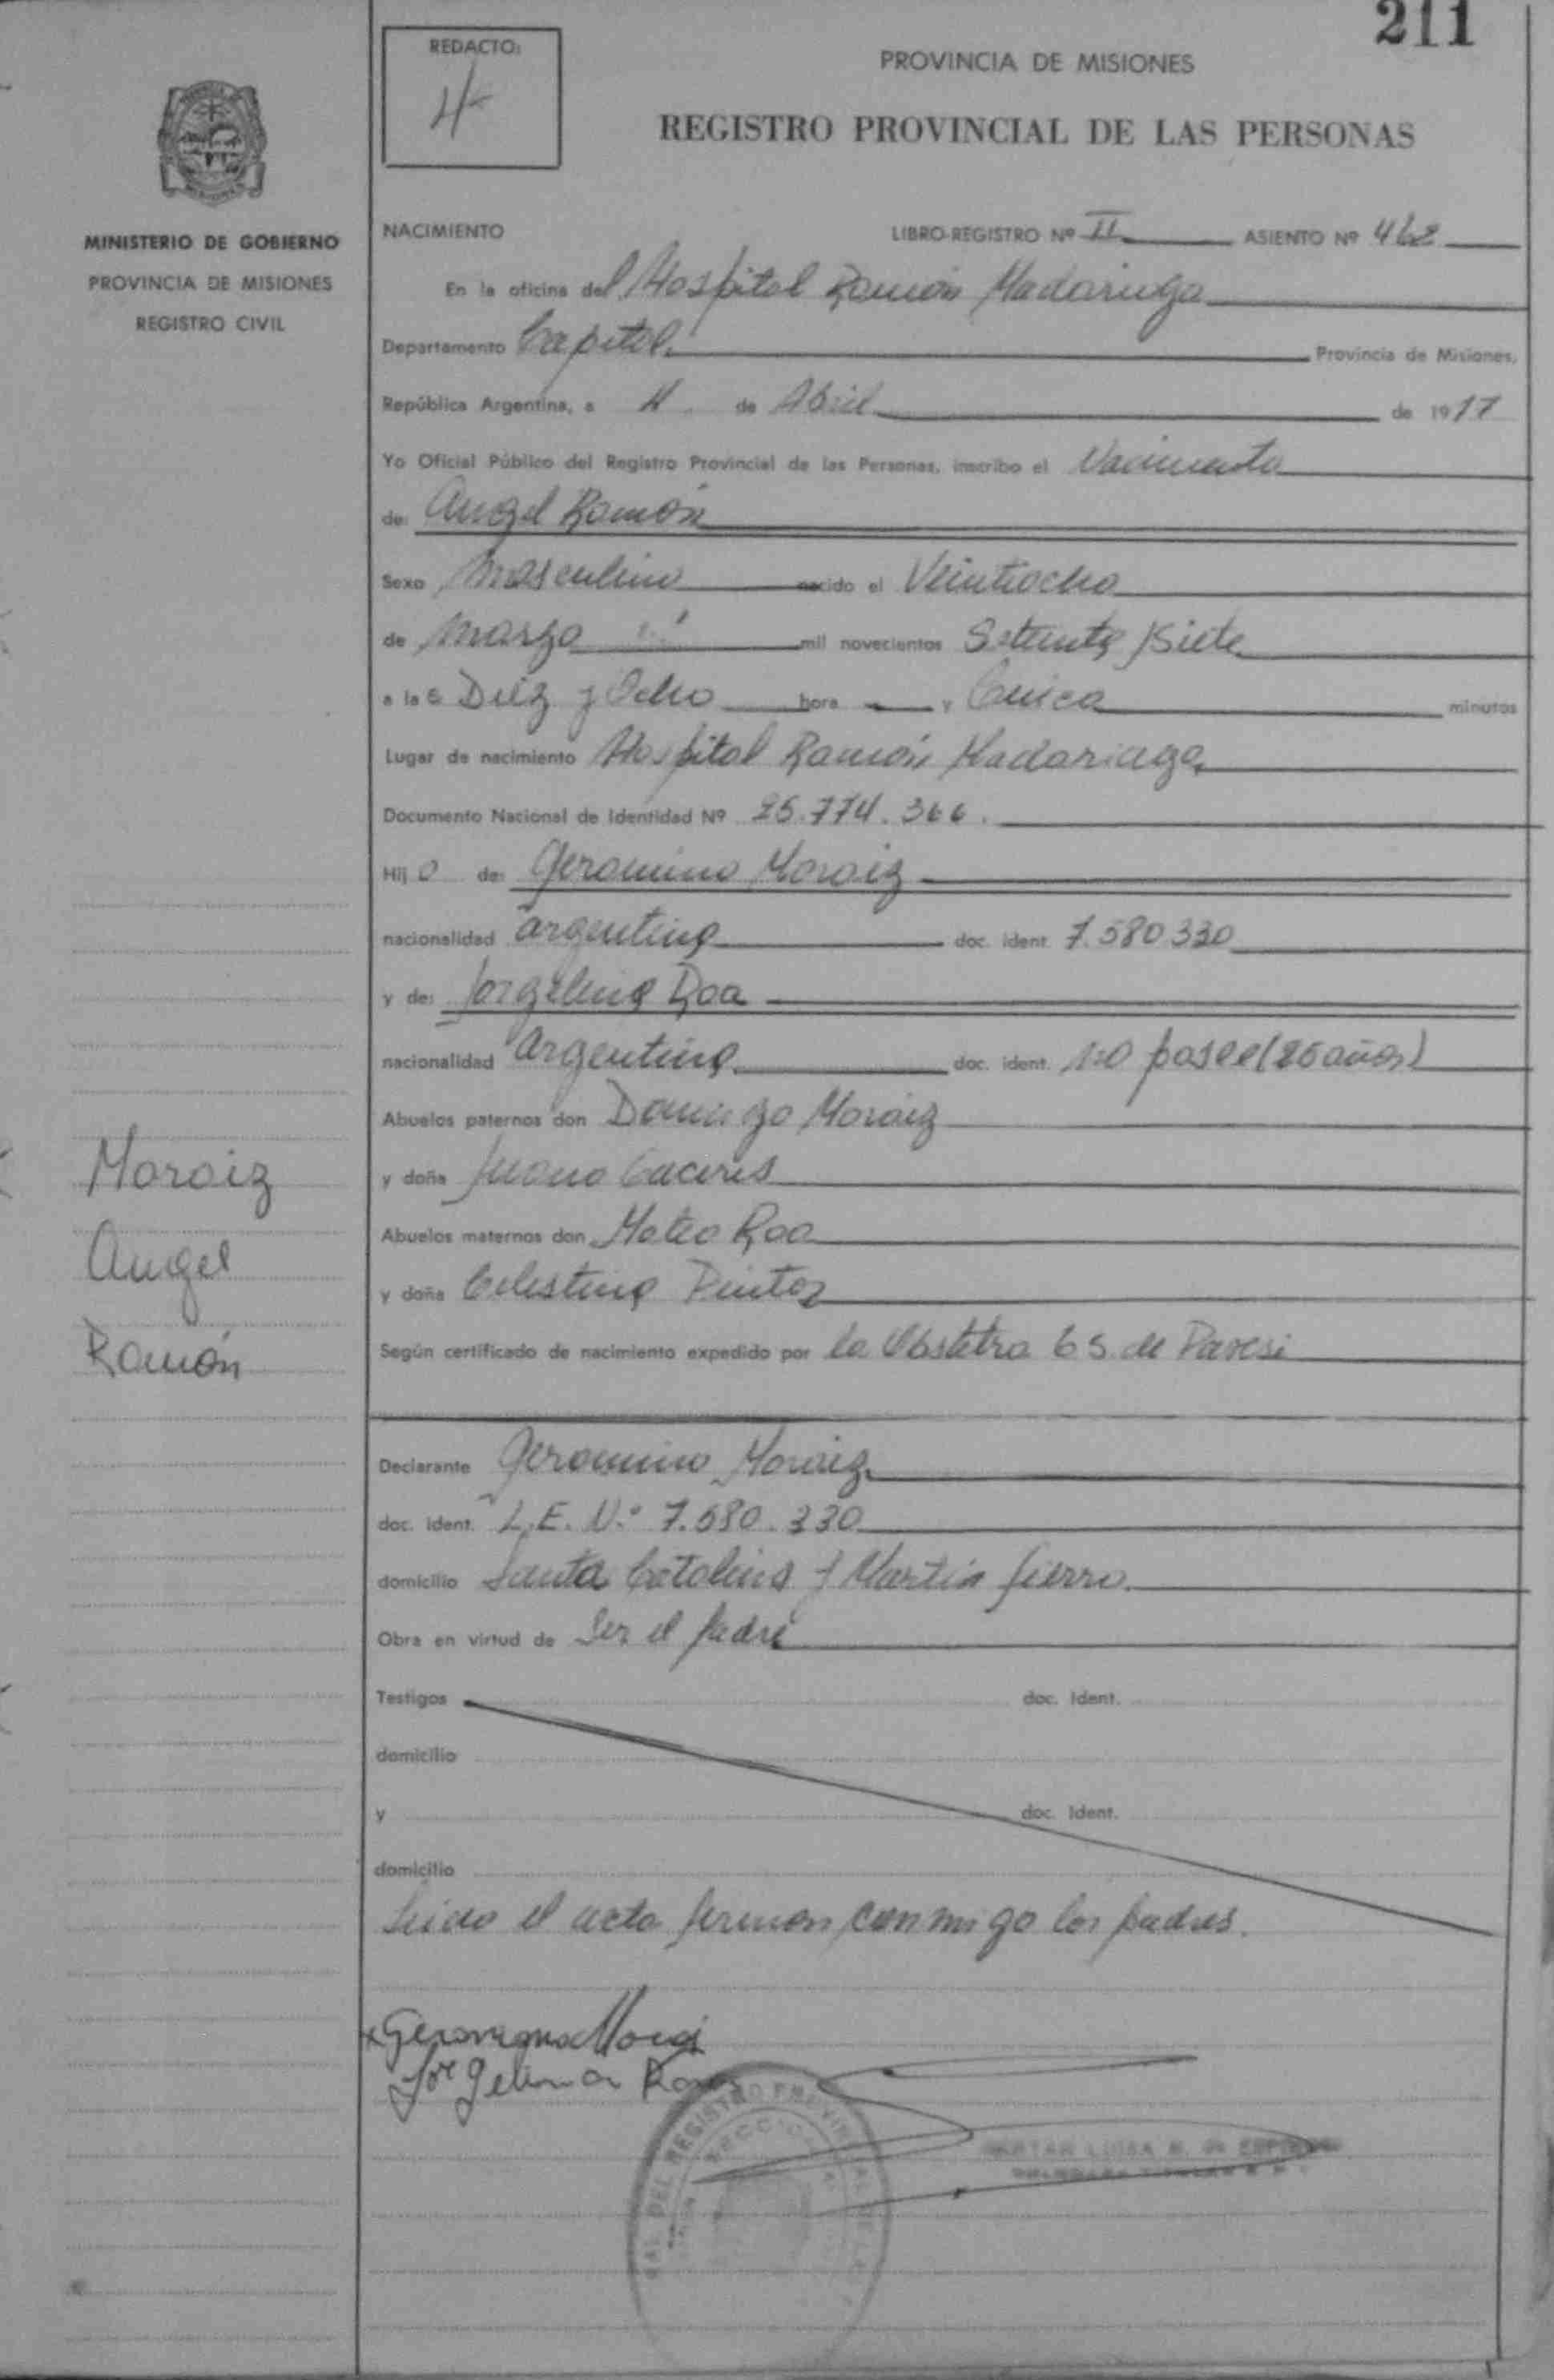 211
REDACTO:
PROVINCIA DE MISIONES
REGISTRO PROVINCIAL DE LAS PERSONAS
MINISTERIO DE GOBIERNO
PROVINCIA DE MISIONES
REGISTRO CIVIL
NACIMIENTO LIBRO-REGISTRO Nº II ASIENTO Nº 462
En la oficina del Hospital Ramón Madariaga
Departamento Capital. Provincia de Misiones,
República Argentina, a 4 de Abril de 1977
Yo Oficial Público del Registro Provincial de las Personas, inscribo el Nacimiento
de: Angel Ramón
Sexo Masculino nacido el Veintiocho
de Marzo mil novecientos Setenta y Siete
a las Diez y Ocho hora y Cinco minutos
Lugar de nacimiento Hospital Ramón Madariaga
Documento Nacional de Identidad Nº 25.774.366.
Hijo de: Geronimo Moraiz
nacionalidad argentina doc. ident. 7.580.330
y de: Jorgelina Roa
nacionalidad argentina doc. ident. no posee (26 años)
Abuelos paternos don Domingo Moraiz
y doña Juana Caceres
Abuelos maternos don Mateo Roa
y doña Celestina Pintos
Según certificado de nacimiento expedido por la Obstetra de Paresi
Moraiz
Angel
Ramón
Declarante Geronimo Moraiz
doc. ident. L.E. N.º 7.580.330
domicilio Santa Catalina y Martin fierro.
Obra en virtud de Ser el padre
Testigos doc. Ident.
domicilio
y doc. Ident.
domicilio
Leido el acta firman conmigo los padres.
Jorgelina Roa